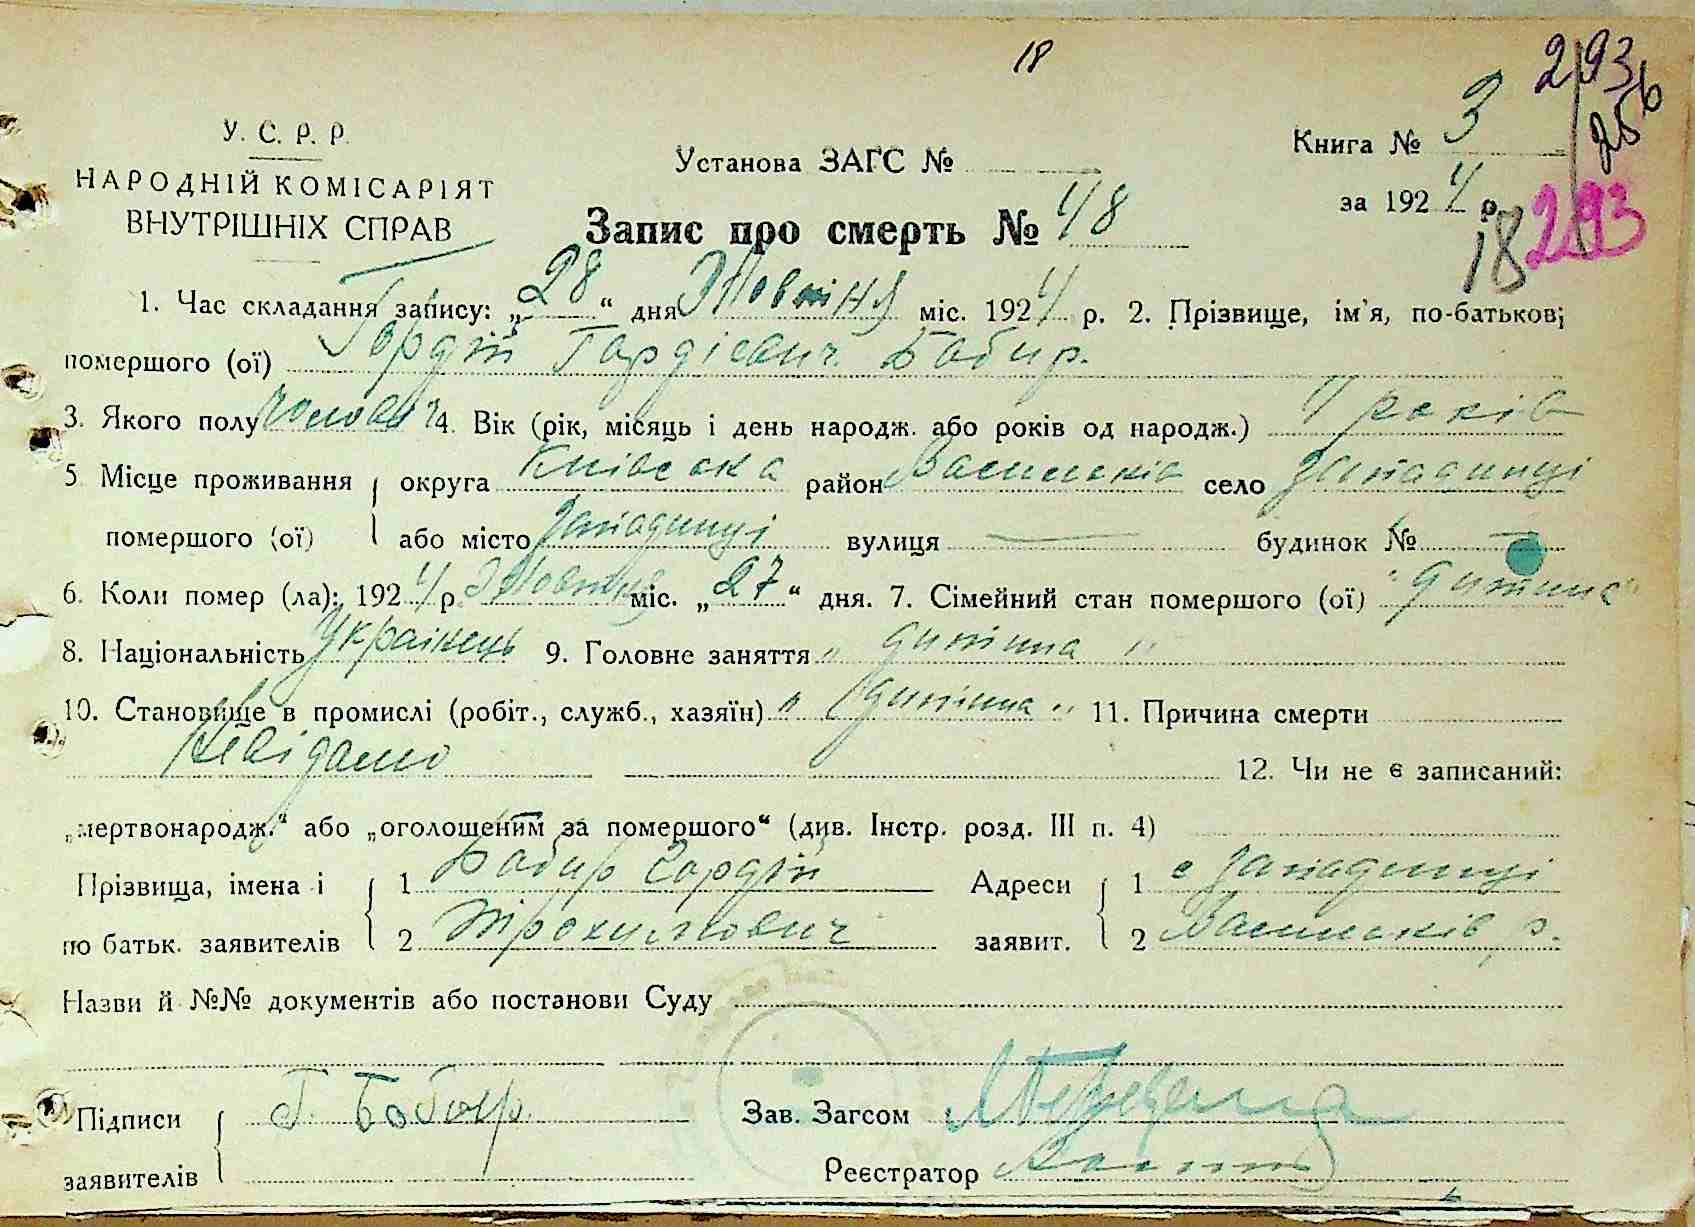 18
293
256
У. С. Р. Р.
НАРОДНІЙ КОМІСАРІЯТ
ВНУТРІШНІХ СПРАВ
Установа ЗАГС №
Книга № 3
за 1924 р.
18 293
Запис про смерть № 48
1. Час складання запису: „28“ дня Жовтня міс. 1924 р. 2. Прізвище, ім'я, по-батькові
помершого (ої) Гордій Гордієвич Бабир.
3. Якого полу чоловіч 4. Вік (рік, місяць і день народж. або років од народж.) 4 років
5 Місце проживання округа Київська район Васильків село Западинці
помершого (ої) або місто Западинці вулиця — будинок № —
6. Коли помер (ла): 1924 р Жовтня міс. „27“ дня. 7. Сімейний стан помершого (ої) "дитина"
8. Національність Українець 9. Головне заняття „ дитина "
10. Становище в промислі (робіт., служб., хазяїн) " дитина " 11. Причина смерти
Невідомо 12. Чи не є записаний:
„мертвонародж.“ або „оголошеним за помершого“ (див. Інстр. розд. III п. 4)
Прізвища, імена і 1 Бабир Гордій Адреси 1 с Западинці
по батьк. заявителів 2 заявит. 2 Васильків, р.
Назви й №№ документів або постанови Суду
Підписи Г. Бабир. Зав. Загсом
заявителів Реєстратор